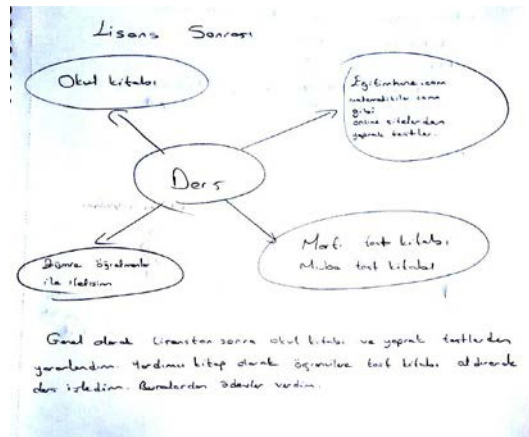 Lisans Sonrası
Okul kitabı
Egitimhane.com
matematikciler.com
gibi
online sitelerden
yaprak testler.
Ders
Zümre öğretmenler
ile iletişim
Morfi test kitabı
Muba test kitabı
Genel olarak Lisanstan sonra okul kitabı ve yaprak testlerden
yararlandım. Yardımcı kitap olarak öğrencilere test kitabı aldırarak
ders işledim. Buralardan ödevler verdim.